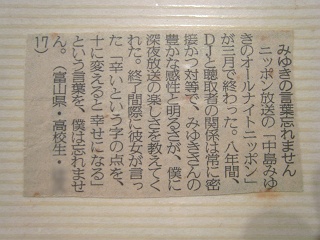 みゆきの言葉忘れません
ニッポン放送の「中島みゆ
きのオールナイトニッポン」
が三月で終わった。八年間、
DJと聴取者の関係は常に密
接かつ対等で、みゆきさんの
豊かな感性と明るさが、僕に
深夜放送の楽しさを教えてく
れた。終了間際に彼女が言っ
た「辛いという字の点を、
十に変えると幸せになる」
という言葉を、僕は忘れませ
ん。（富山県・高校生・
17）